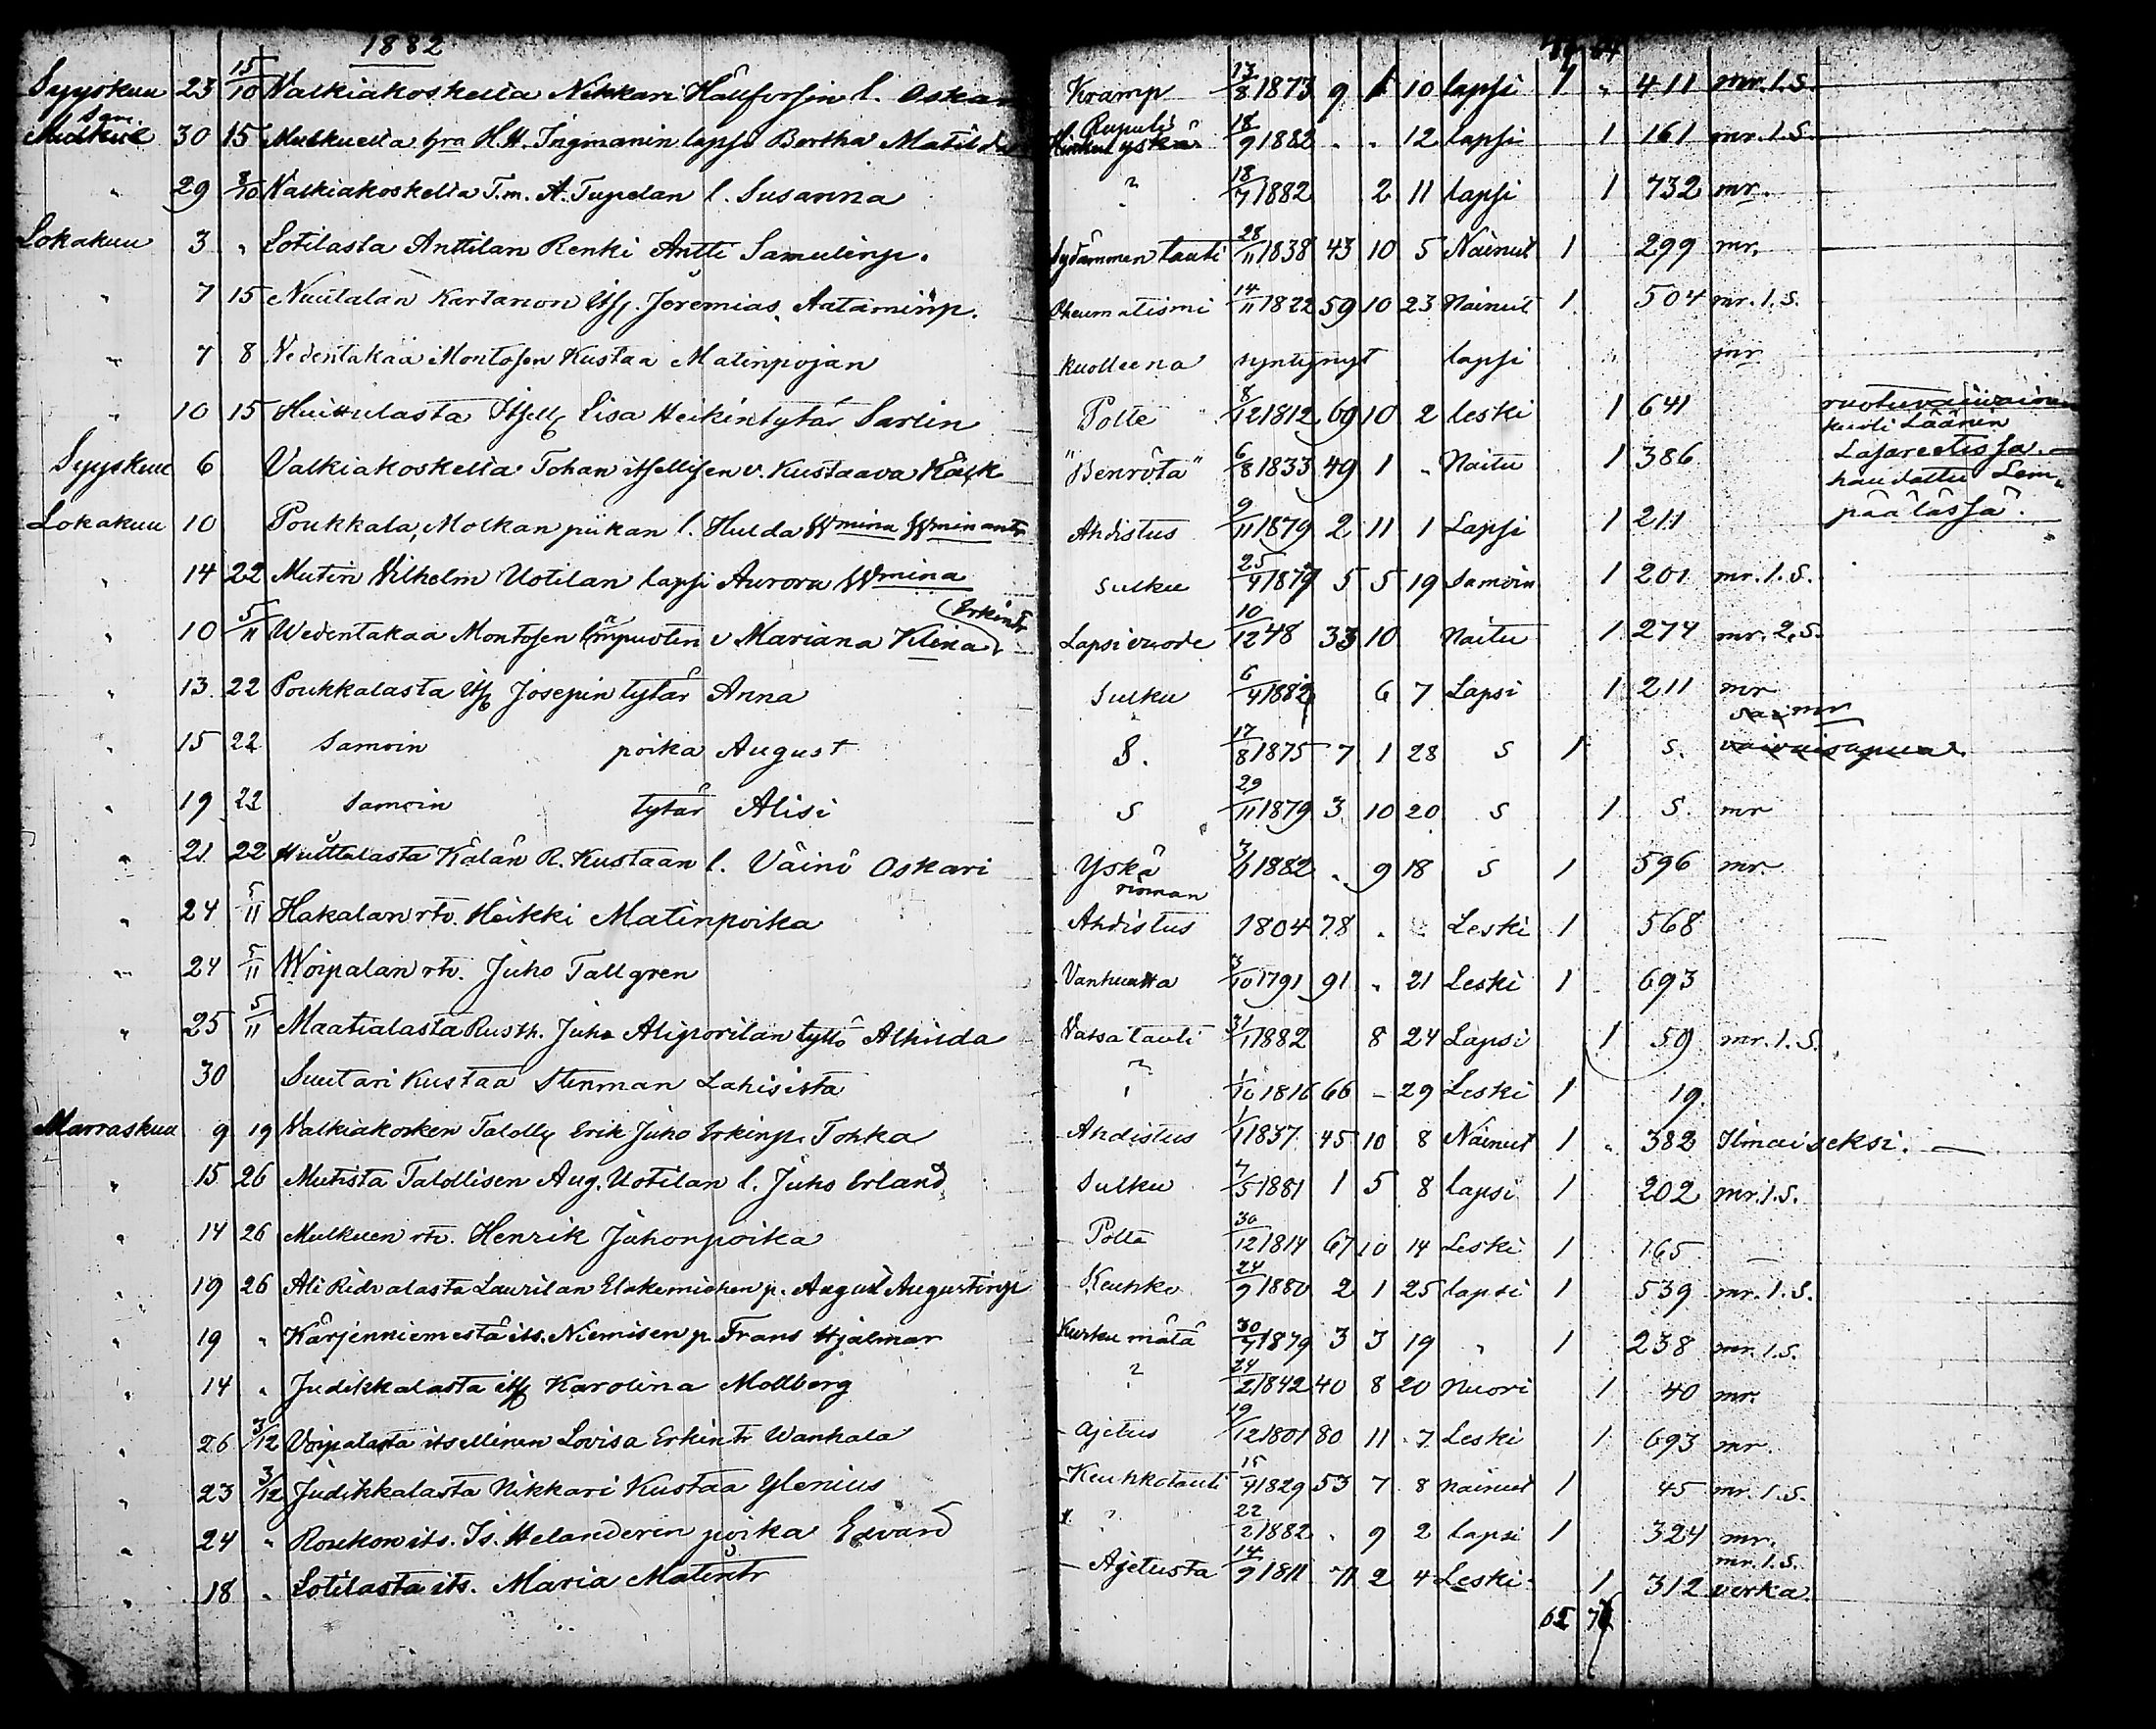 1882
Syyskuu 23 15/10 Valkiakoskelta Nikkari Hällforsin l. Oskar Kramp 13/8 1873 9 1 10 lapsi 1 " 411 mr. 1. S.
Sam. 30 15 Mulkuelta hra H. H. Ingmanin lapsi Bertha Matilda Kupuli yskä 18/9 1882 " " 12 lapsi 1 161 mr. 1. S.
" 29 8/10 Valkiakoskelta T.m. A. Tupelan l. Susanna ? 18/7 1882 2 11 lapsi 1 732 mr.
Lokakuu 3 " Lotilasta Anttilan Renki Antti Samulinp. Sydämmen tauti 28/11 1838 43 10 5 Nainut 1 299 mr.
" 7 15 Nuutalan Kartanon Its. Jeremias Aataminp. Rheumatismi 14/11 1822 59 10 23 Nainut 1 504 mr. 1. S.
" 7 8 Vedentakaa Montosen Kustaa Matinpojan kuolleena syntynyt lapsi mr
" 10 15 Huittulasta Itsell Lisa Heikintytär Sarlin Polte 8/12 1812 69 10 2 leski 1 641 ruotuvaivainen
kuoli Läänin
Syyskuu 6 Valkiakoskelta Johan itsellisen v. Kustaava Käck "Benröta" 6/8 1833 49 1 " Naitu 1 386 Lasaretissa.
haudattu Lem-
Lokakuu 10 Poukkala, Molkan piikan l. Hulda Wmina Wminantr Ahdistus 9/11 1879 2 11 1 Lapsi 1 211 päälässä.
" 14 22 Mutin Vilhelm Uotilan lapsi Aurora Wmina Sulku 25/4 1877 5 5 19 Samoin 1 201 mr. 1. S.
" 10 5/11 Wedentakaa Montosen v Mariana Klena Erkintr Lapsivuode 10/12 48 33 10 Naitu 1 274 mr. 2. S.
" 13 22 Poukkalasta Its Josepin tytär Anna Sulku 6/4 1882 6 7 Lapsi 1 211 mr
" 15 22 Samoin poika August S. 17/8 1875 7 1 28 S 1 S. sai mr
vaivaisapua.
" 19 22 Samoin tytär Alisi S 29/11 1879 3 10 20 S 1 S. mr
" 21 22 Huittulasta Kälän R. Kustaan l. Väinö Oskari Yskä 3/1 1882 " 9 18 S 1 596 mr.
" 24 5/11 Hakalan rtv. Heikki Matinpoika rinnan Ahdistus 1804 78 " " Leski 1 568
" 24 5/11 Woipalan rtv. Juho Tallgren Vanhuutta 3/10 1791 91 " 21 Leski 1 693
" 25 5/11 Maatialasta Rusth. Juho Aliporilan tyttö Alhilda Vatsatauti 31/1 1882 8 24 Lapsi 1 59 mr. 1. S.
30 Suutari Kustaa Stenman Lahisista ? 1/10 1816 66 - 29 Leski 1 19
Marraskuu 9 19 Valkiakosken Talolls Erik Juho Erkinp. Tohka Ahdistus 1/1 1837 45 10 8 Nainut 1 " 382 Ilmaiseksi.
" 15 26 Mutista Talollisen Aug. Uotilan l. Juho Erland Sulku 7/5 1881 1 5 8 lapsi 1 202 mr. 1. S.
" 14 26 Mulkuen rtv. Henrik Juhonpoika Polte 30/12 1814 67 10 14 Leski 1 165 -
" 19 26 Ali Ridvalasta Laurilan Elakemiehen p. August Augustinp Keuhko 24/9 1880 2 1 25 lapsi 1 539 mr. 1. S.
" 19 " Kärjenniemestä its. Niemisen p. Frans Hjalmar Kurkumätä 30/7 1879 3 3 19 " 1 238 mr. 1. S.
" 14 " Judikkalasta its Karolina Mollberg ? 24/2 1842 40 8 20 Nuori 1 40 mr.
" 26 3/12 Voipalasta itsellinen Lovisa Erkintr Wanhala Ajetus 19/12 1801 80 11 7 Leski 1 693 mr.
" 23 3/12 Judikkalasta Nikkari Kustaa Ylenius Keuhkotauti 15/4 1829 53 7 8 nainut 1 45 mr. 1. S.
" 24 " Roukon its. Is. Helanderin poika Edvard ? 22/2 1882 " 9 2 lapsi 1 324 mr.
" 18 " Lotilasta its. Maria Matintr Ajetusta 14/9 1811 71 2 4 Leski 1 312 mr. 1. S.
verka
65